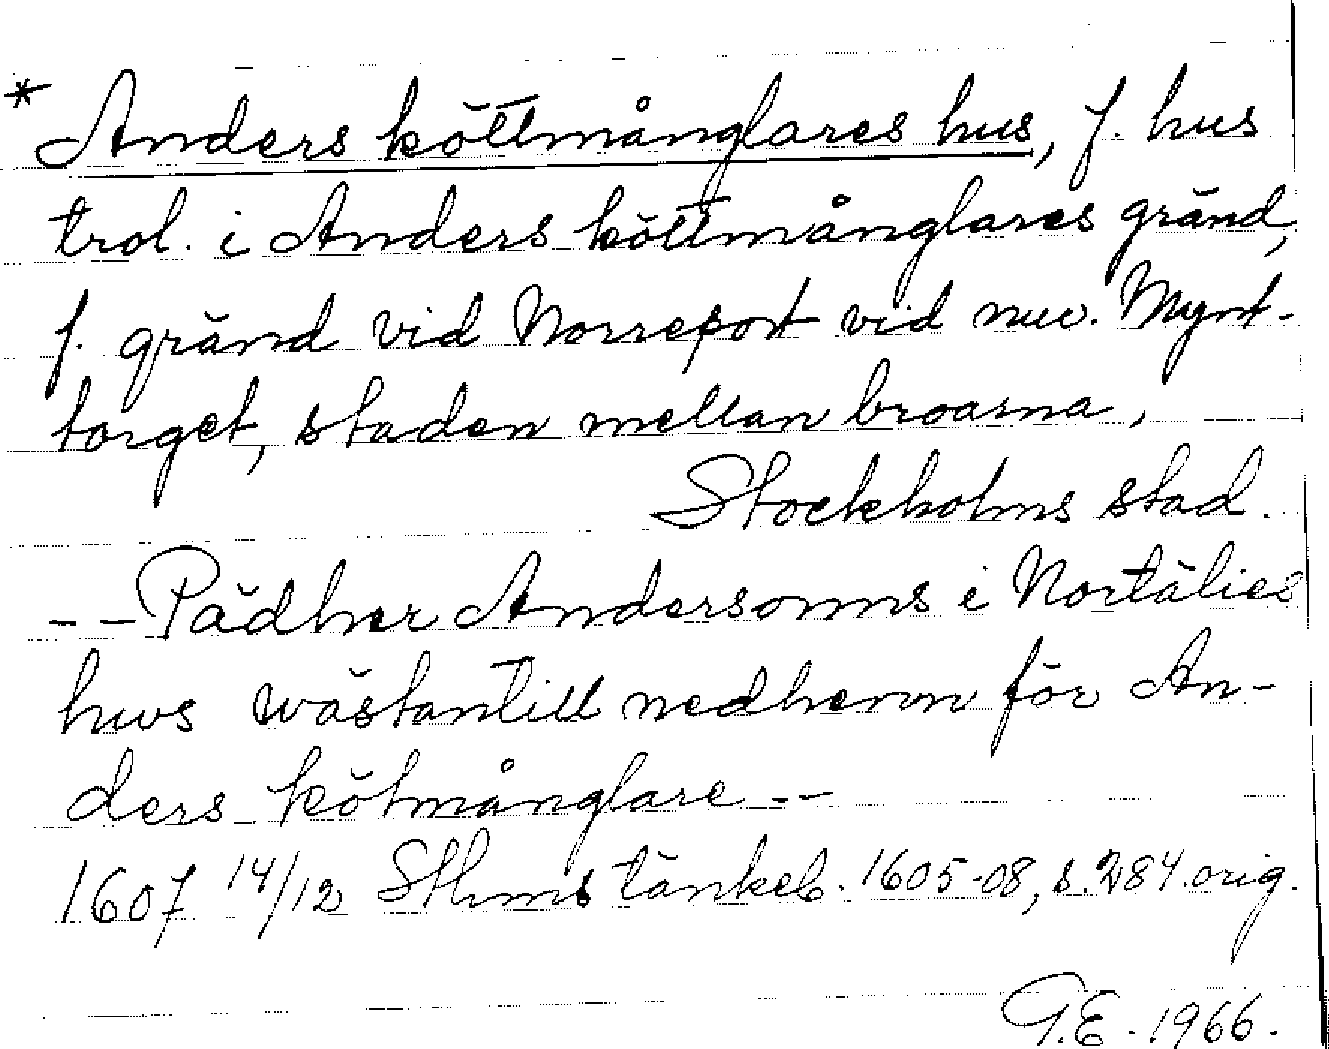 * Anders köttmånglares hus, f. hus
trol. i Anders köttmånglares gränd,
f. gränd vid Norreport vid nuv. Mynt-
torget, staden mellan broarna,
Stockholms stad.
-- Pädher Andersonns i Nortälies
hws wästantill nedhenn för An-
ders kötmånglare --
1607 14/12 Sthms tänkeb. 1605-08, s. 284 orig.
G.E. 1966.